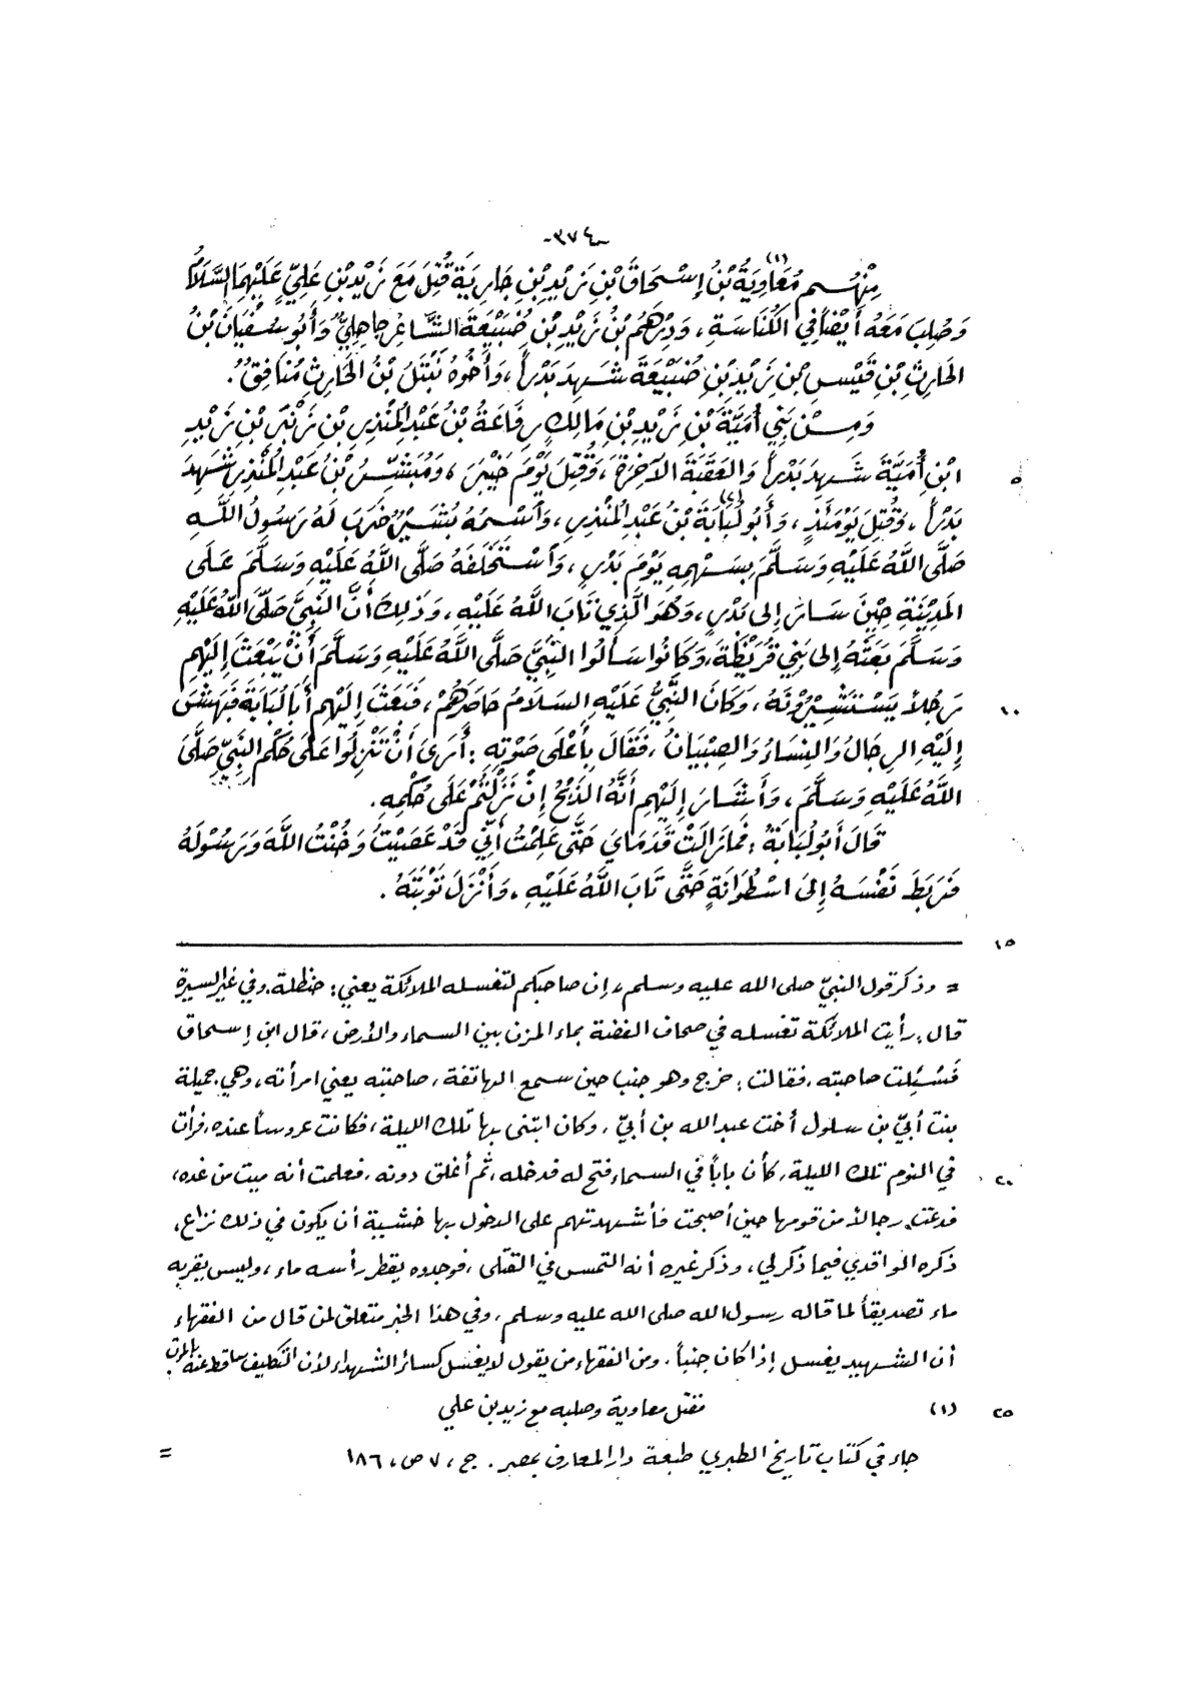 -٣٧٤-
مِنْهُم مُعَاوِيَةُ(١) بْنُ إِسْحَاقَ بْنِ زَيْدِ بْنِ جَارِيَةَ قُتِلَ مَعَ زَيْدِ بْنِ عَلِيٍّ عَلَيْهِمَا السَّلَامُ
وَصُلِبَ مَعَهُ أَيْضَاً فِي الكُنَاسَةِ، وَدِرْهَمُ بْنُ زَيْدِ بْنِ ضُبَيْعَةَ الشَّاعِرُ جَاهِلِيٌّ وَأَبُو سُفْيَانَ بْنُ
الحَارِثِ بْنِ قَيْسِ بْنِ زَيْدِ بْنِ ضُبَيْعَةَ شَهِدَ بَدْرَاً، وَأَخُوهُ نَبْتَلُ بْنُ الحَارِثِ مُنَافِقٌ.
وَمِنْ بَنِي أُمَيَّةَ بْنِ زَيْدِ بْنِ مَالِكٍ رِفَاعَةُ بْنُ عَبْدِ المُنْذِرِ بْنِ زَنْبَرِ بْنِ زَيْدِ
٥ ابْنِ أُمَيَّةَ شَهِدَ بَدْرَاً وَالعَقَبَةَ الآخِرَةَ، وَقُتِلَ يَوْمَ خَيْبَرَ، وَمُبَشِّرُ بْنُ عَبْدِ المُنْذِرِ شَهِدَ
بَدْرَاً، وَقُتِلَ يَوْمَئِذٍ، وَأَبُو لُبَابَةَ(٢) بْنُ عَبْدِ المُنْذِرِ، وَاسْمُهُ بُشَيْرٌ ضَرَبَ لَهُ رَسُولُ اللَّهِ
صَلَّى اللَّهُ عَلَيْهِ وَسَلَّمَ بِسَهْمِهِ يَوْمَ بَدْرٍ، وَاسْتَخْلَفَهُ صَلَّى اللَّهُ عَلَيْهِ وَسَلَّمَ عَلَى
المَدِيْنَةِ حِيْنَ سَارَ إِلى بَدْرٍ، وَهُوَ الَّذِي تَابَ اللَّهُ عَلَيْهِ، وَذَلِكَ أَنَّ النَّبِيَّ صَلَّى اللَّهُ عَلَيْهِ
وَسَلَّمَ بَعَثَهُ إِلى بَنِي قُرَيْظَةَ، وَكَانُوا سَأَلُوا النَّبِيَّ صَلَّى اللَّهُ عَلَيْهِ وَسَلَّمَ أَنْ يَبْعَثَ إِلَيْهِم
١٠ رَجُلاً يَسْتَشِيْرُونَهُ، وَكَانَ النَّبِيُّ عَلَيْهِ السَلَامُ حَاصَرَهُمْ، فَبَعَثَ إِلَيْهِم أَبَا لُبَابَةَ فَبَهَشَ
إِلَيْهِ الرِجَالُ وَالنِسَاءُ وَالصِبْيَانُ، فَقَالَ بِأَعْلَى صَوْتِهِ: أَرَى أَنْ تَنْزِلُوا عَلَى حُكْمِ النَّبِيِّ صَلَّى
اللَّهُ عَلَيْهِ وَسَلَّمَ، وَأَشَارَ إِلَيْهِم أَنَّهُ الذَبْحُ إِنْ نَزَلْتُمْ عَلَى حُكْمِهِ.
قَالَ أَبُو لُبَابَةَ: فَمَا زَالَتْ قَدَمَايَ حَتَّى عَلِمْتُ أَنِّي قَدْ عَصَيْتُ وَخُنْتُ اللَّهَ وَرَسُوْلَهُ
فَرَبَطَ نَفْسَهُ إِلى اسْطُوَانَةٍ حَتَّى تَابَ اللَّهُ عَلَيْهِ، وَأَنْزَلَ تَوْبَتَهُ.
١٥
= وذكر قول النبيّ صلى الله عليه وسلم، إن صاحبكم لتغسله الملائكة يعني: حنظلة، وفي غير السيرة
قال: رأيت الملائكة تغسله في صحاف الفضة بماء المزن بين السماء والأرض، قال ابن إسحاق
فَسُئِلت صاحبته، فقالت: خرج وهو جنب حين سمع الهاتفة، صاحبته يعني امرأته، وهي: جميلة
بنت أبيّ بن سلول أخت عبدالله بن أبيّ، وكان ابتنى بها تلك الليلة، فكانت عروساً عنده، فرأت
٢٠ في النوم تلك الليلة، كأن باباً في السماء فتح له فدخله، ثم أغلق دونه، فعلمت أنه ميت من غده،
فدعت رجالاً من قومها حين أصبحت فأشهدتهم على الدخول بها خشية أن يكون في ذلك نزاع،
ذكره الواقدي فيما ذكر لي، وذكر غيره أنه التمس في القتلى، فوجدوه يقطر رأسه ماء، وليس بقربه
ماء تصديقاً لما قاله رسول الله صلى الله عليه وسلم، وفي هذا الخبر متعلق لمن قال من الفقهاء
أن الشهيد يغسل إذا كان جنباً، ومن الفقهاء من يقول لا يغسل كسائر الشهداء لأن التكليف ساقط عنه بالموت
٢٥ (١) مقتل معاوية وصلبه مع زيد بن علي
جاء في كتاب تاريخ الطبري طبعة دار المعارف بمصر. ج، ٧ ص، ١٨٦ =